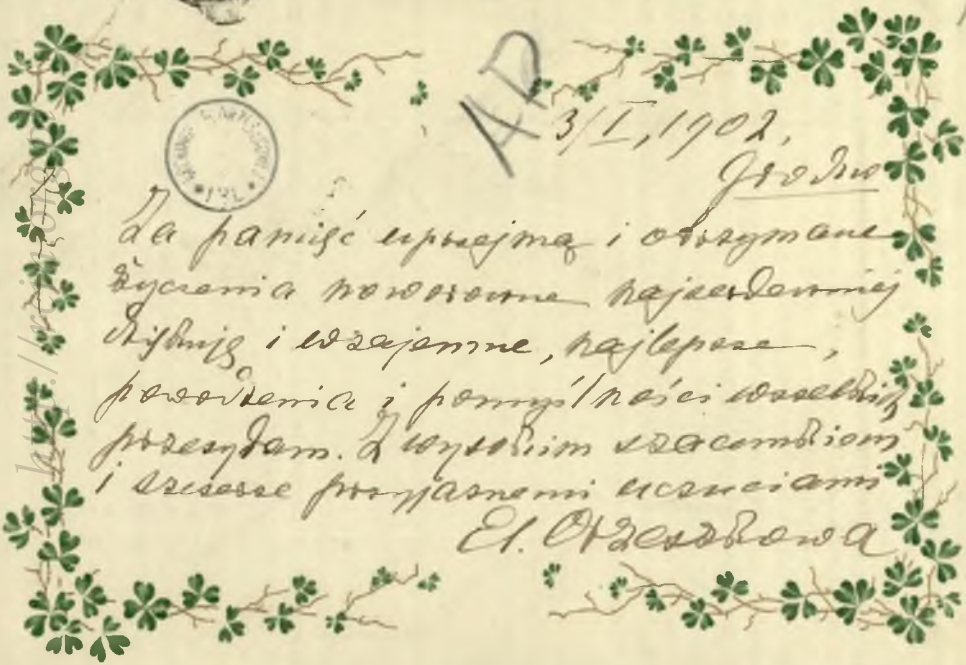 AP
3/I, 1902,
Grodno
Za pamięć uprzejmą i otrzymane
życzenia noworoczne najserdeczniej
dziękuję i wzajemne, najlepsze,
powodzenia i pomyślności wszelkich
przesyłam. Z wysokim szacunkiem
i szczerze przyjaznemi uczuciami
El. Orzeszkowa